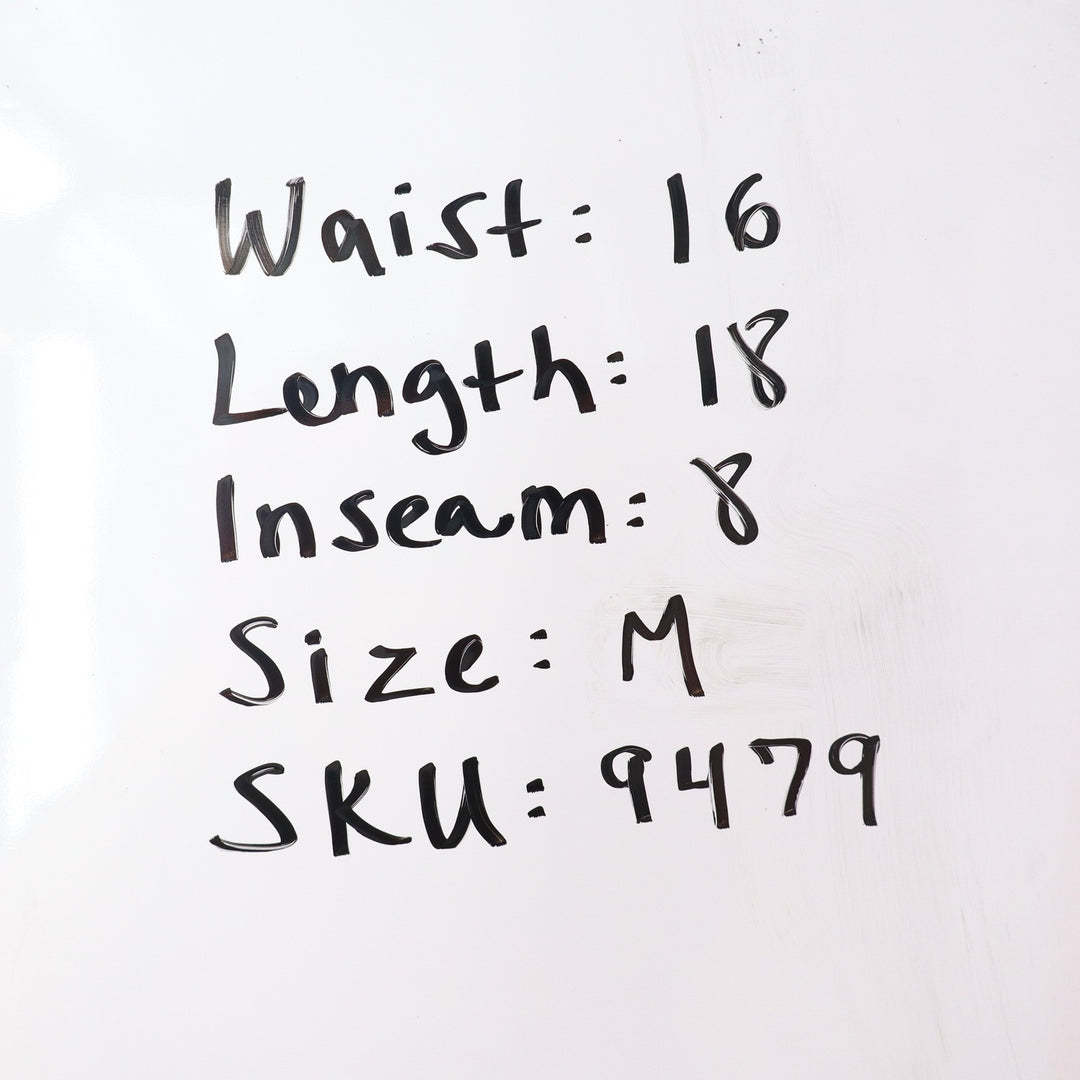 Waist: 16
Length: 18
Inseam: 8
Size: M
SKU: 9479